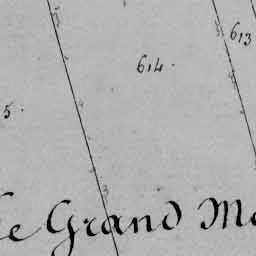 613
614.
5.
Le Grand